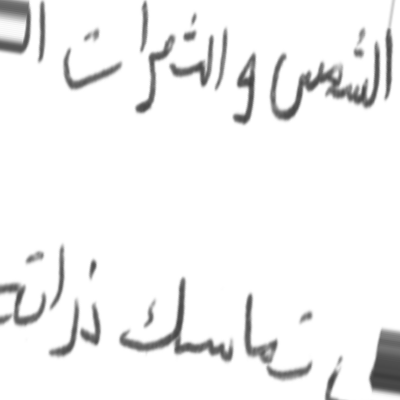 الشمس و الثمرات ا
تماسك ذراته